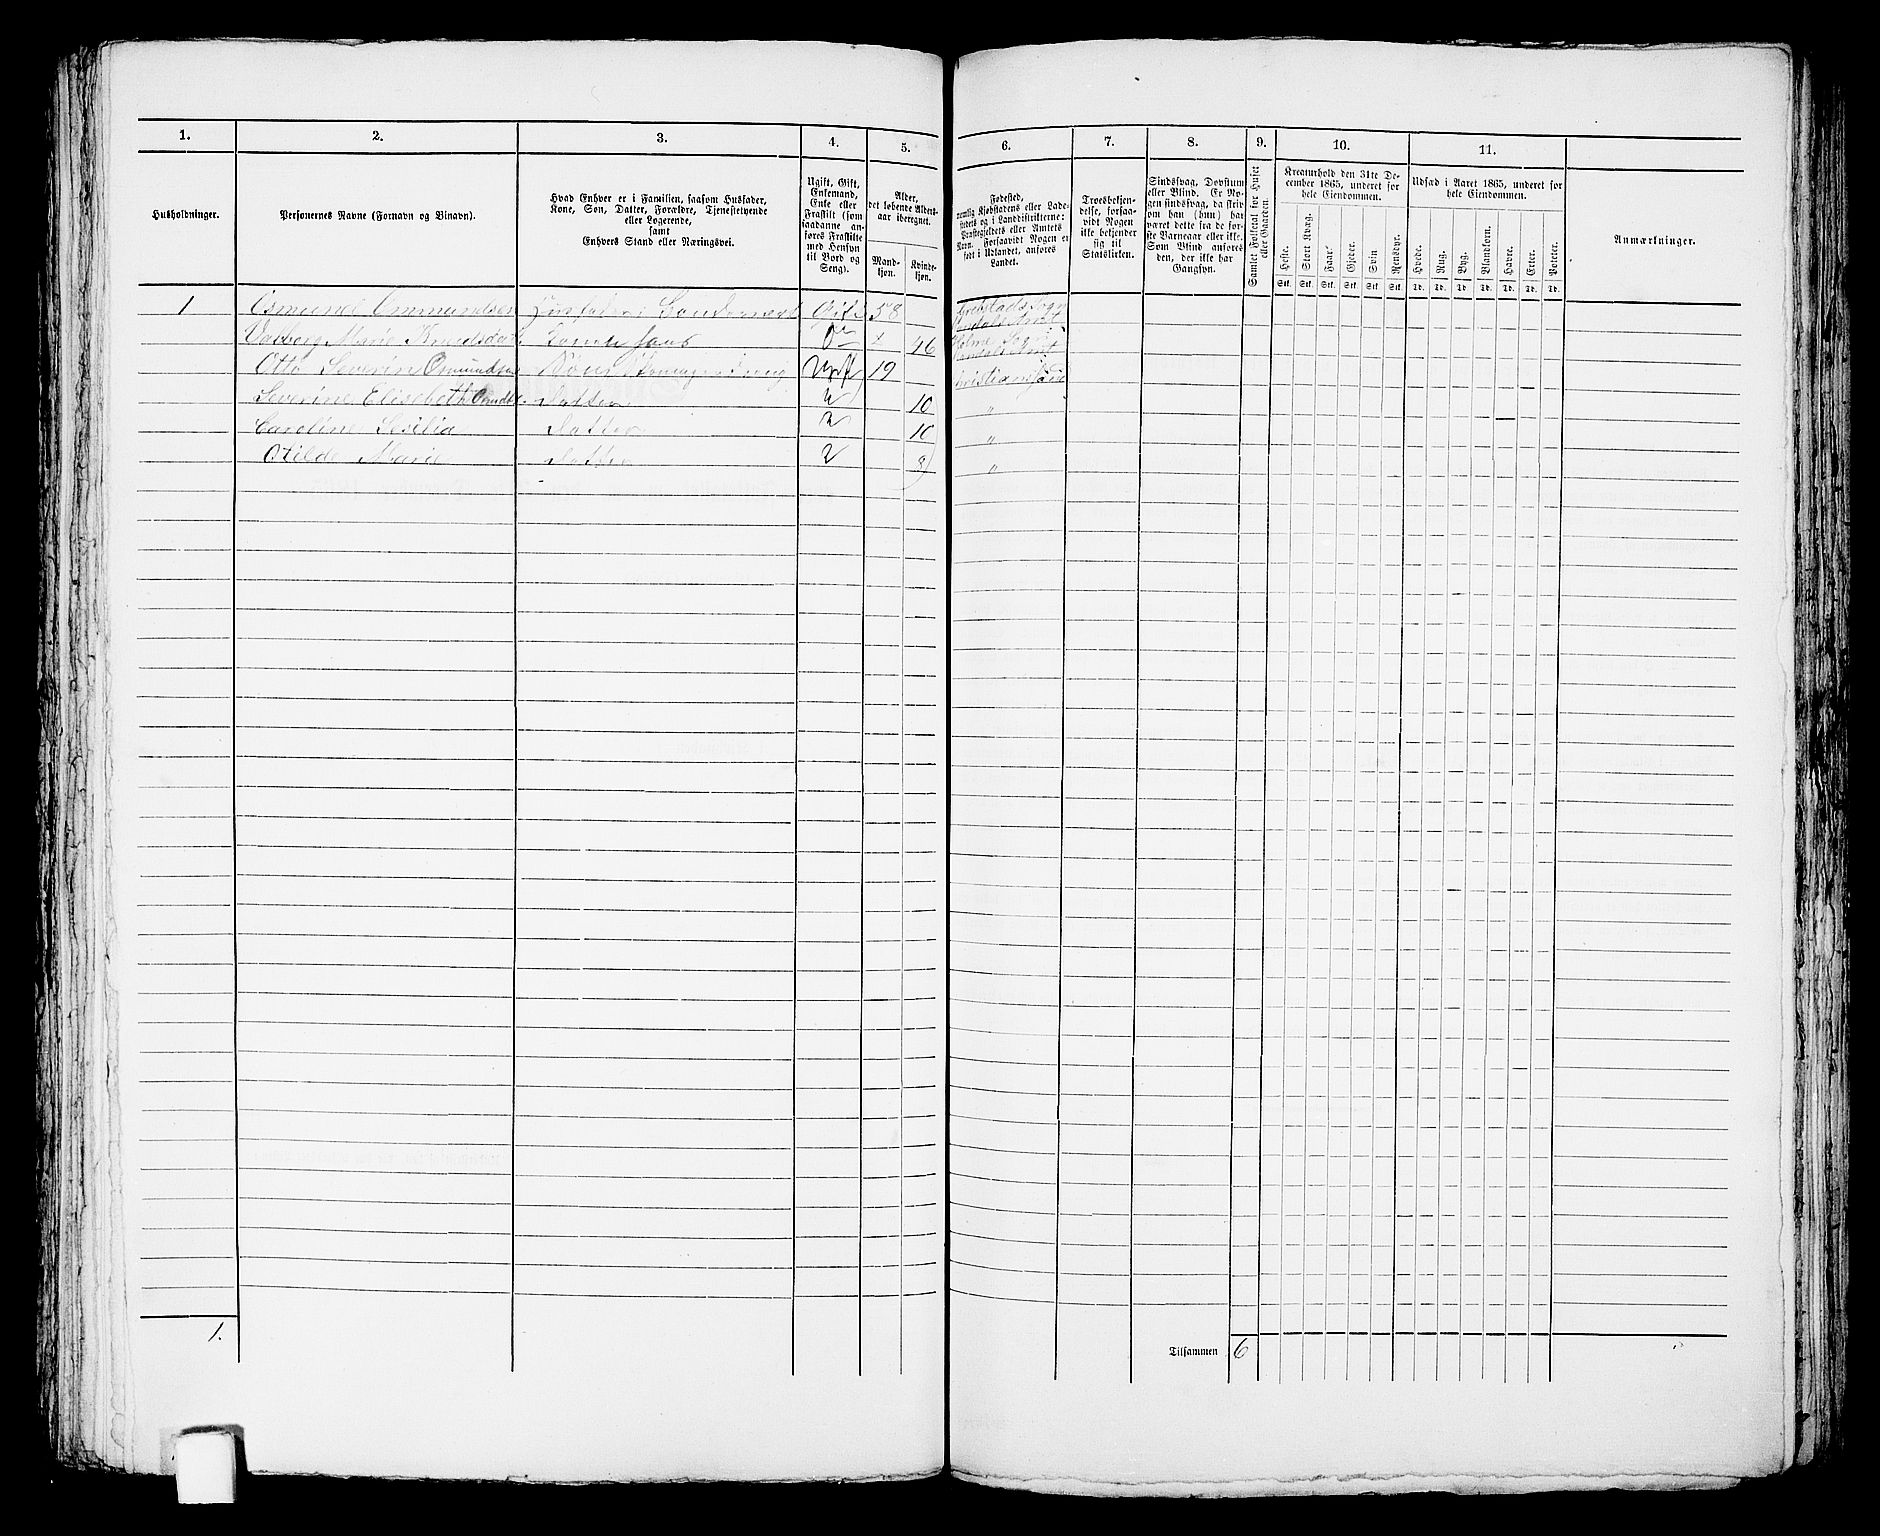 1. 2. 3. 4. 5. 6. 7. 8. 9. 10. 11.
Husholdninger.
Personernes Navne (Fornavn og Binavn).
Hvad Enhver er i Familien, saasom Husfader,
Kone, Søn, Datter, Forældre, Tjenestetyende
eller Logerende,
samt
Enhvers Stand eller Næringsvei.
Ugift, Gift,
Enkemand,
Enke eller
Fraskilt (som
saadanne an-
føres Fraskilte
med Hensyn
til Bord og
Seng).
Alder,
det løbende Alders-
aar iberegnet.
Mand-
kjøn.
Kvinde-
kjøn.
Fødested,
nemlig Kjøbstadens eller Lade-
stedets og i Landdistrikterne:
Præstegjeldets eller Amtets
Navn. Forsaavidt Nogen er
født i Udlandet, anføres
Landet.
Troesbekjen-
delse, forsaa-
vidt Nogen
ikke bekjender
sig til
Statskirken.
Sindssvag, Døvstum
eller Blind. Er No-
gen sindssvag, da skriv
om han (hun) har
været dette fra de før-
ste Barneaar eller ikke.
Som Blind ansees
den, der ikke har
Gangsyn.
Gamlet Folketal for Huset
eller Gaarden.
Kreaturhold den 31te De-
cember 1865, underet for
hele Eiendommen.
Heste. Stort Kvæg. Faar. Gjeder. Svin Rensdyr.
Stk. Stk. Stk. Stk. Stk. Stk.
Udsæd i Aaret 1865, underet for
hele Eiendommen.
Hvede. Rug. Byg. Blandkorn. Havre. Erter. Poteter.
Td. Td. Td. Td. Td. Td. Td.
Anmærkninger.
1 Osmund Ommundsen Husfader Gift 58
Marie 46
Otto Severin Osmundsen Søn Ugift 19 Christianssand
Severine Elisebeth Datter 10 "
Caroline Datter 10 "
Otilde Marie Datter 8 "
1.
Tilsammen 6